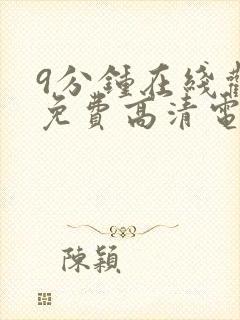 9分鍾在綫
免費高清電
陳穎